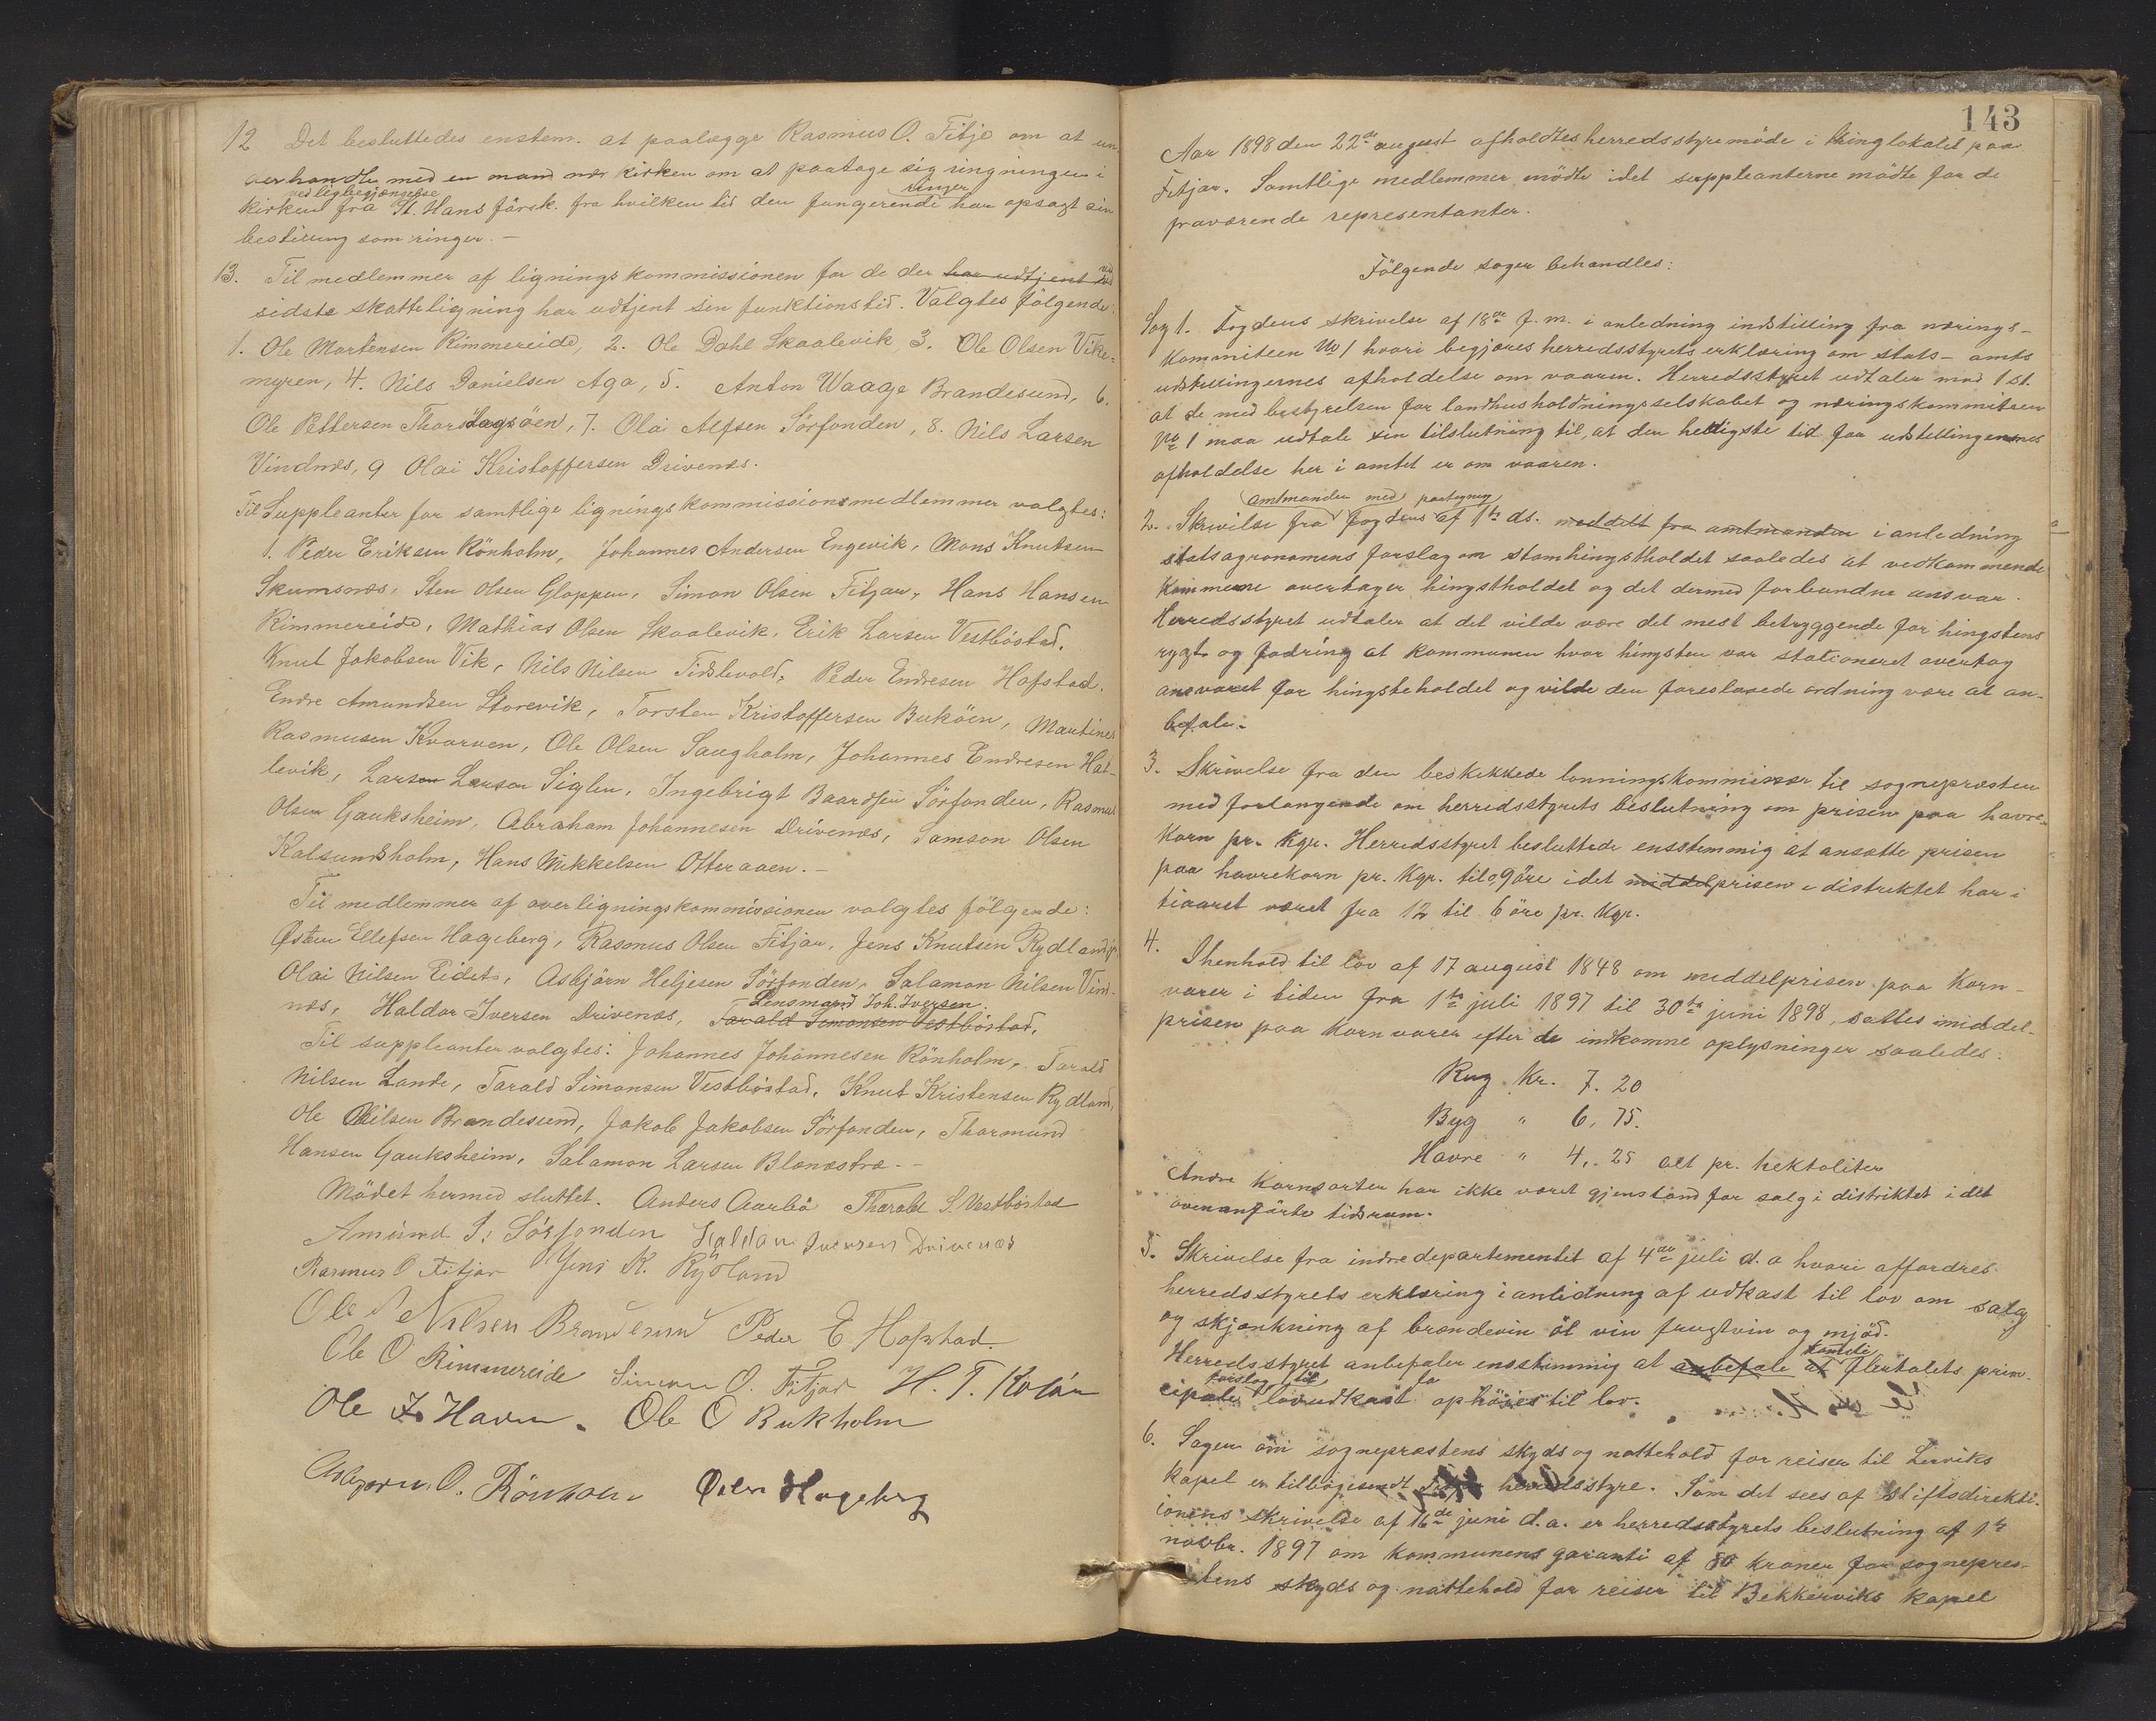 12 Det besluttedes enstem. at paalægge Rasmus O. Fitje om at un-
derhandle med en mand nær kirken om at paatage sig ringningen i
ved ligbegjængelse ringer
kirken fra St. Hans förstk. fra hvilken tid den fungerende har opsagt sin
bestilling som ringer. -
13. Til medlemmer af ligningskommissionen for de der har udtjent ved
sidste skatteligning har udtjent sin funktionstid. Valgtes følgende:
1. Ole Mortensen Rimmereide, 2. Ole Dahl Skaalevik 3. Ole Olsen Vike-
myren, 4. Nils Danielsen Aga, 5. Anton Waage Brandesund, 6.
Ole Pettersen Thorsdagsöen, 7. Olai Alfsen Sörfonden, 8. Nils Larsen
Vindnæs, 9 Olai Kristoffersen Drivenæs.
Til Suppleanter for samtlige ligningskommissionsmedlemmer valgtes:
1. Peder Eriksen Rönholm, Johannes Andersen Engevik, Mons Knutsen
Skumsnæs, Sten Olsen Gloppen, Simon Olsen Fitjar, Hans Hansen
Rimmereide, Mathias Olsen Skaalevik, Erik Larsen Vestböstad,
Knut Jakobsen Vik, Nils Nilsen Tislevold, Peder Endresen Hofstad.
Endre Amundsen Storevik, Torsten Kristoffersen Buköen, Martines
Rasmusen Kvarven, Ole Olsen Saugholm, Johannes Endresen Hat-
levik, Larson Larson Siglen, Ingebrigt Baardsen Sörfonden, Rasmus
Olsen Gauksheim, Abraham Johannesen Drivenæs, Samson Olsen
Kalsundsholm, Hans Mikkelsen Otteraaen. -
Til medlemmer af overligningskommissionen valgtes følgende:
Østen Ellefsen Hageberg, Rasmus Olsen Fitjar, Jens Knutsen Rydland,
Olai Nilsen Eidet, Asbjörn Heljesen Sörfonden, Salamon Nilsen Vind-
Lensmand Joh. Iversen.
næs, Haldor Iversen Drivenæs, Tarald Simonsen Vestböstad,
Til suppleanter valgtes: Johannes Johannesen Rönholm, Tarald
Nilsen Lande, Tarald Simonsen Vestböstad, Knut Kristensen Rydland,
Ole Nilsen Brandesund, Jakob Jakobsen Sörfonden, Thormund
Hansen Gauksheim, Salamon Larsen Blænæstræ. -
Mödet hermed sluttet. Anders Aarbö Tharald S. Vestböstad
Amund I. Sörfonden Haldan Iversen Drivenæs
Rasmus O Fitjar Jens K. Rydland
Ole Nilsen Brandesund Peder E. Hofstad.
Ole O Rimmereide Simon O. Fitjar H. T. Koløen
Ole J. Havn. Ole O Bukholm
Asbjørn O. Rönholm Østen Hageberg
143
Aar 1898 den 22de august afholdtes herredsstyremöde i thinglokalet paa
Fitjar. Samtlige medlemmer mödte idet suppleanterne mödte for de
fraværende representanter.
Fölgende sager behandles:
Sag 1. Fogdens skrivelse af 18de f. m. i anledning indstilling fra nærings-
kommiteen No 1 hvori begjæres herredsstyrets erklæring om stats- amts
udstillingernes afholdelse om vaaren. Herredsstyret udtaler mod 1 st.
at de med bestyrelsen for landhusholdningsselskabet og næringskommiteen
No 1 maa udtale sin tilslutning til, at den heldigste tid for udstillingernes
afholdelse her i amtet er om vaaren.
amtmanden med paategning
2. Skrivelse fra fogdens af 1ste ds. meddelt fra amtmanden i anledning
statsagronomens forslag om stamhingstholdet saaledes at vedkommende
kommune overtager hingstholdet og det dermed forbundne ansvar.
Herredsstyret udtaler at det vilde være det mest betryggende for hingstens
rygt og fodring at kommunen hvor hingsten var stationeret overtog
ansvaret for hingsteholdet og vilde den foreslaaede ordning være at an-
befale.
3. Skrivelse fra den beskikkede lønningskommissær til sognepræsten
med forlangende om herredsstyrets beslutning om prisen paa havre-
korn pr. Kgr. Herredsstyret besluttede ensstemmig at ansætte prisen
paa havrekorn pr. Kgr. til 0,9 öre idet middelprisen i distriktet har i
tiaaret været fra 12 til 6 öre pr. Kgr.
4. I henhold til lov af 17 august 1848 om middelprisen paa Korn-
varer i tiden fra 1ste juli 1897 til 30te juni 1898, sattes middel-
prisen paa Kornvarer efter de indkomne oplysninger saaledes:
Rug Kr. 7. 20
Byg " 6, 75.
Havre " 4,. 25 alt pr. hektoliter
Andre Kornsorter har ikke været gjenstand for salg i distriktet i det
ovenanförte tidsrum.
5. Skrivelse fra indredepartementet af 4de juli d. a hvori affordres
herredsstyrets erklæring i anledning af udkast til lov om salg
og skjænkning af brændevin öl vin frugtvin og mjød.
komite
Herredsstyret anbefaler ensstemmig at anbefale at flertalets prin-
forslag til
cipale lovudkast ophöies til lov.
6. Sagen om sognepræstens skyds og nattehold for reiser til Lerviks
kapel er tilbagesendt herredsstyre. Som det sees af Stiftsdirekti-
ionens skrivelse af 16de juni d. a. er herredsstyrets beslutning af 1ste
novbr. 1897 om kommunens garanti af 80 kroner for sognepres-
tens skyds og nattehold for reiser til Bekkerviks kapel